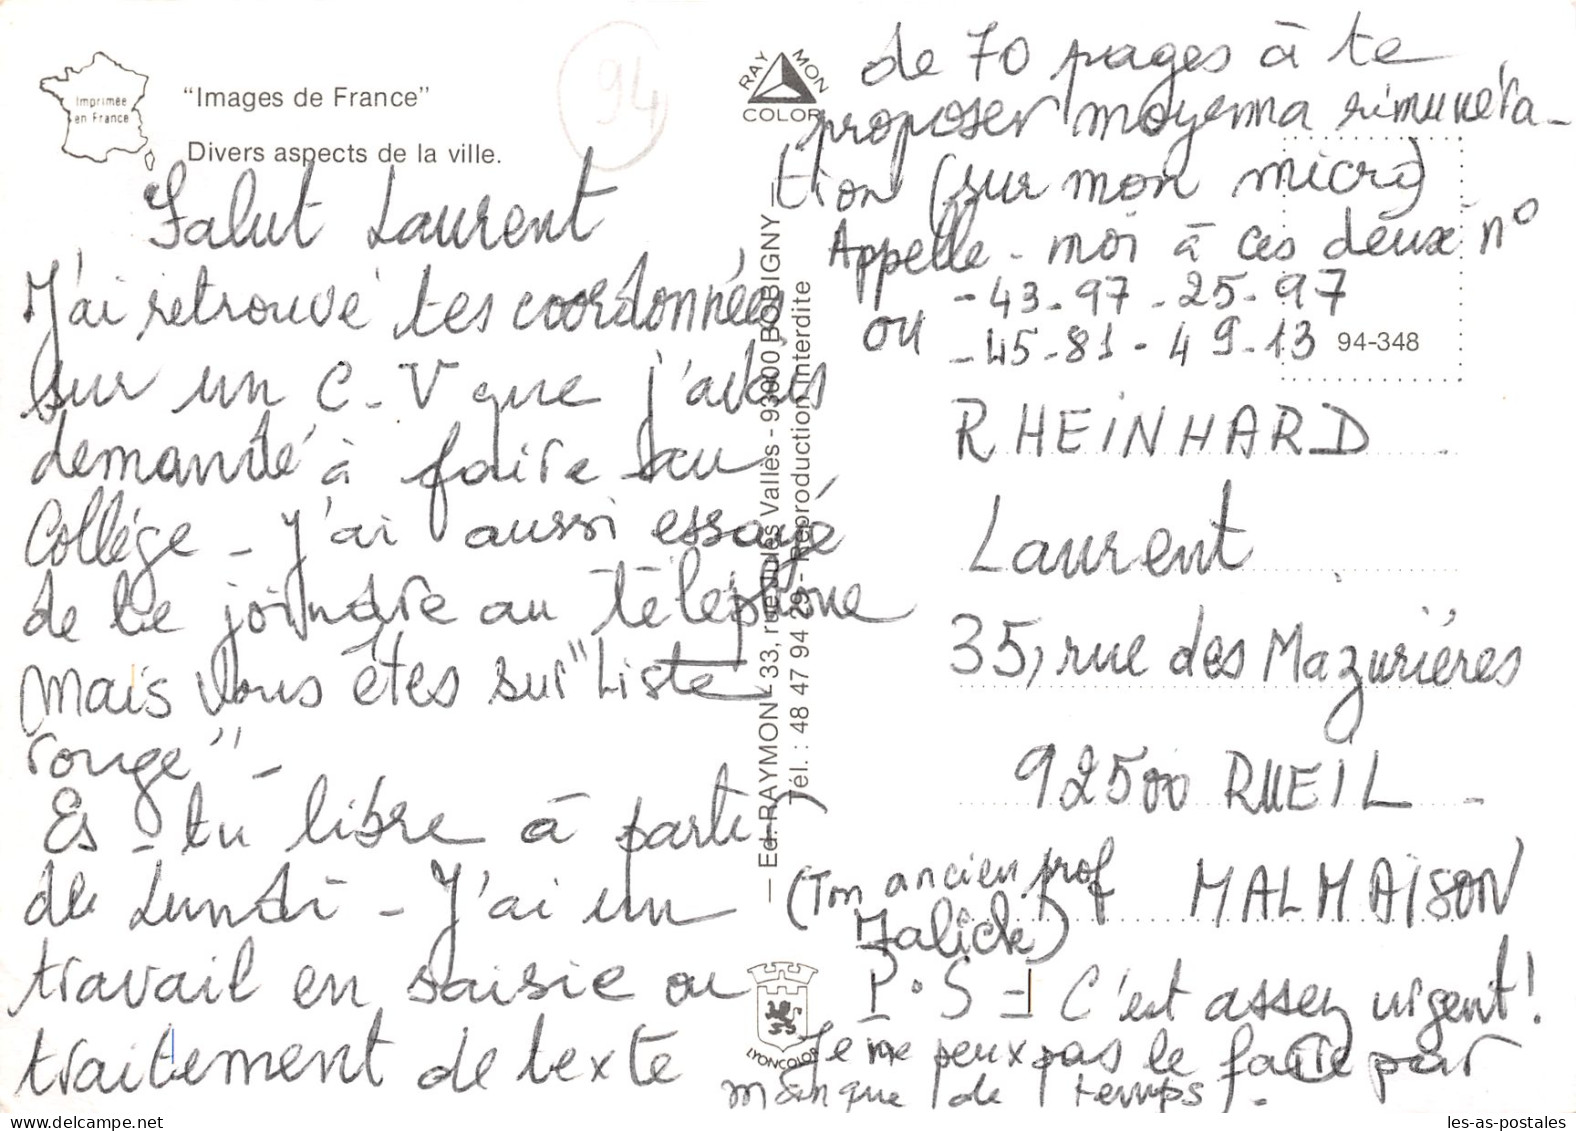 Imprimée
en France
"Images de France"
Divers aspects de la ville.
94
Salut Laurent
J'ai retrouvé tes coordonnées
sur un C-V que j'avais
demandé à faire au
Collége - J'ai aussi essayé
de te joindre au téléphone
mais vous êtes sur "Liste
rouge" -
Es-tu libre à partir
de Lundi - J'ai un
travail en saisie ou
traitement de texte
RAYMON
COLOR
— Ed. RAYMON - 33, rue Jules Vallès - 93000 BOBIGNY —
Tél. : 48 47 94 29 - Reproduction interdite
LYONCOLOR
de 70 pages à te
proposer moyenna rimunéra-
tion (sur mon micro)
Appelle-moi à ces deux n°
- 43-97-25-97
ou - 45-81-49-13
94-348
RHEINHARD
Laurent
35, rue des Mazurières
92500 RUEIL -
MALMAISON
(Ton ancien prof
Jalick)
P.S = C'est assez urgent!
Je ne peux pas le faire par
manque de temps -
les-as-postales